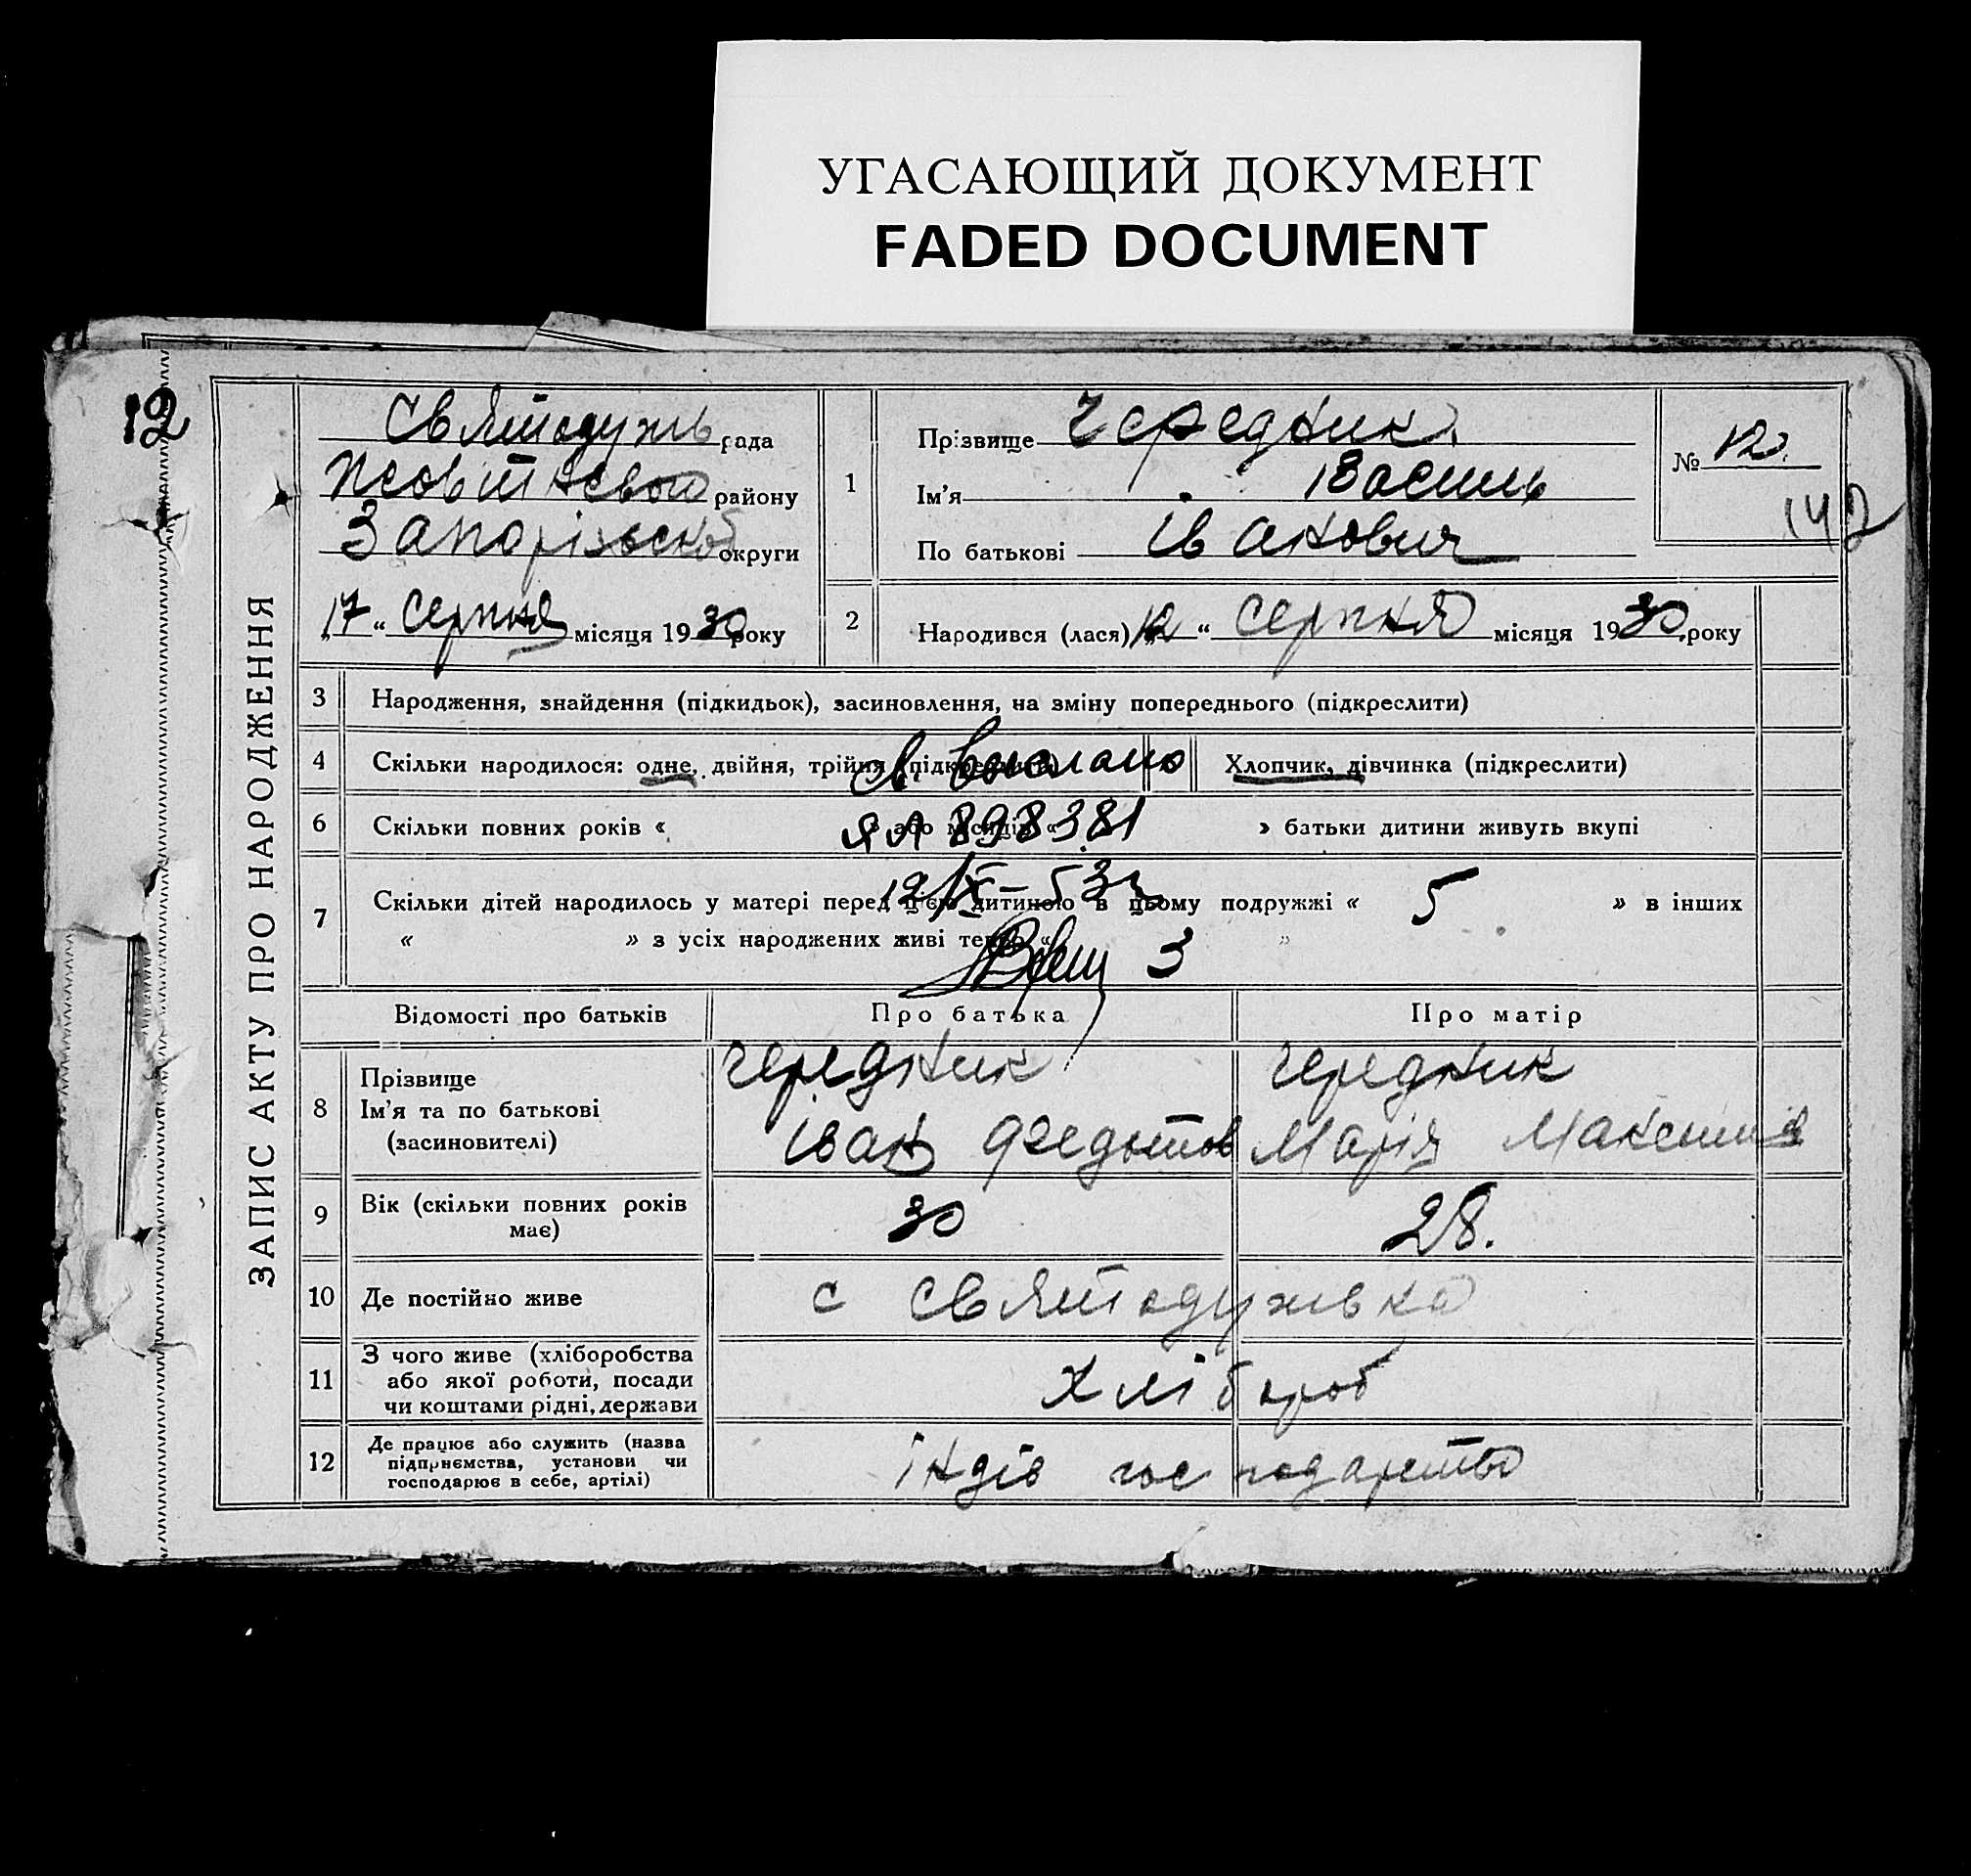 УГАСАЮЩИЙ ДОКУМЕНТ
FADED DOCUMENT
12
ЗАПИС АКТУ ПРО НАРОДЖЕННЯ
Святодухів рада
району
Запорізької округи
„17“ Серпня місяця 1930 року
1
Прізвище Чередник
Ім'я Василь
По батькові Іванович
№ 12.
142
2
Народився (лася) „12“ серпня місяця 1930 року
3 Народження, знайдення (підкидьок), засиновлення, на зміну попереднього (підкреслити)
4 Скільки народилося: одне, двійня, трійня (підкреслити) Хлопчик, дівчинка (підкреслити)
Св. выслано
6 Скільки повних років « » або місяців « » батьки дитини живуть вкупі
ЯЛ 898381
12/IX-53г
7 Скільки дітей народилось у матері перед цією дитиною в цьому подружжі « 5 » в інших
« » з усіх народжених живі тепер « 3 »
Відомості про батьків Про батька Про матір
8 Прізвище
Ім'я та по батькові
(засиновителі)
Чередник
Іван Федотов
Чередник
Марія Максимів
9 Вік (скільки повних років має) 30 28.
10 Де постійно живе с Святодухівка
11 З чого живе (хліборобства
або якої роботи, посади
чи коштами рідні, держави
Хлібороб
12 Де працює або служить (назва
підприємства, установи чи
господарює в себе, артілі)
індів господарство